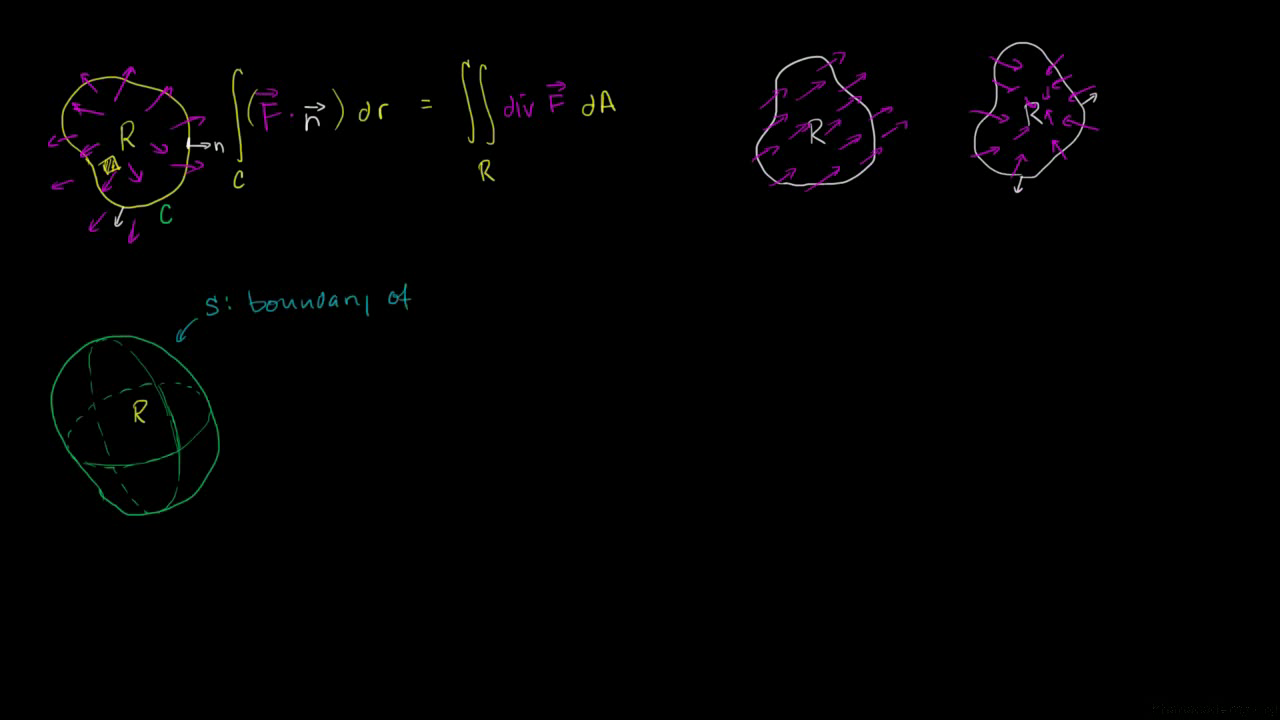 R
n
C
∫_C (F⃗ · n⃗) dr = ∬_R div F⃗ dA
R
R
S: boundary of
R